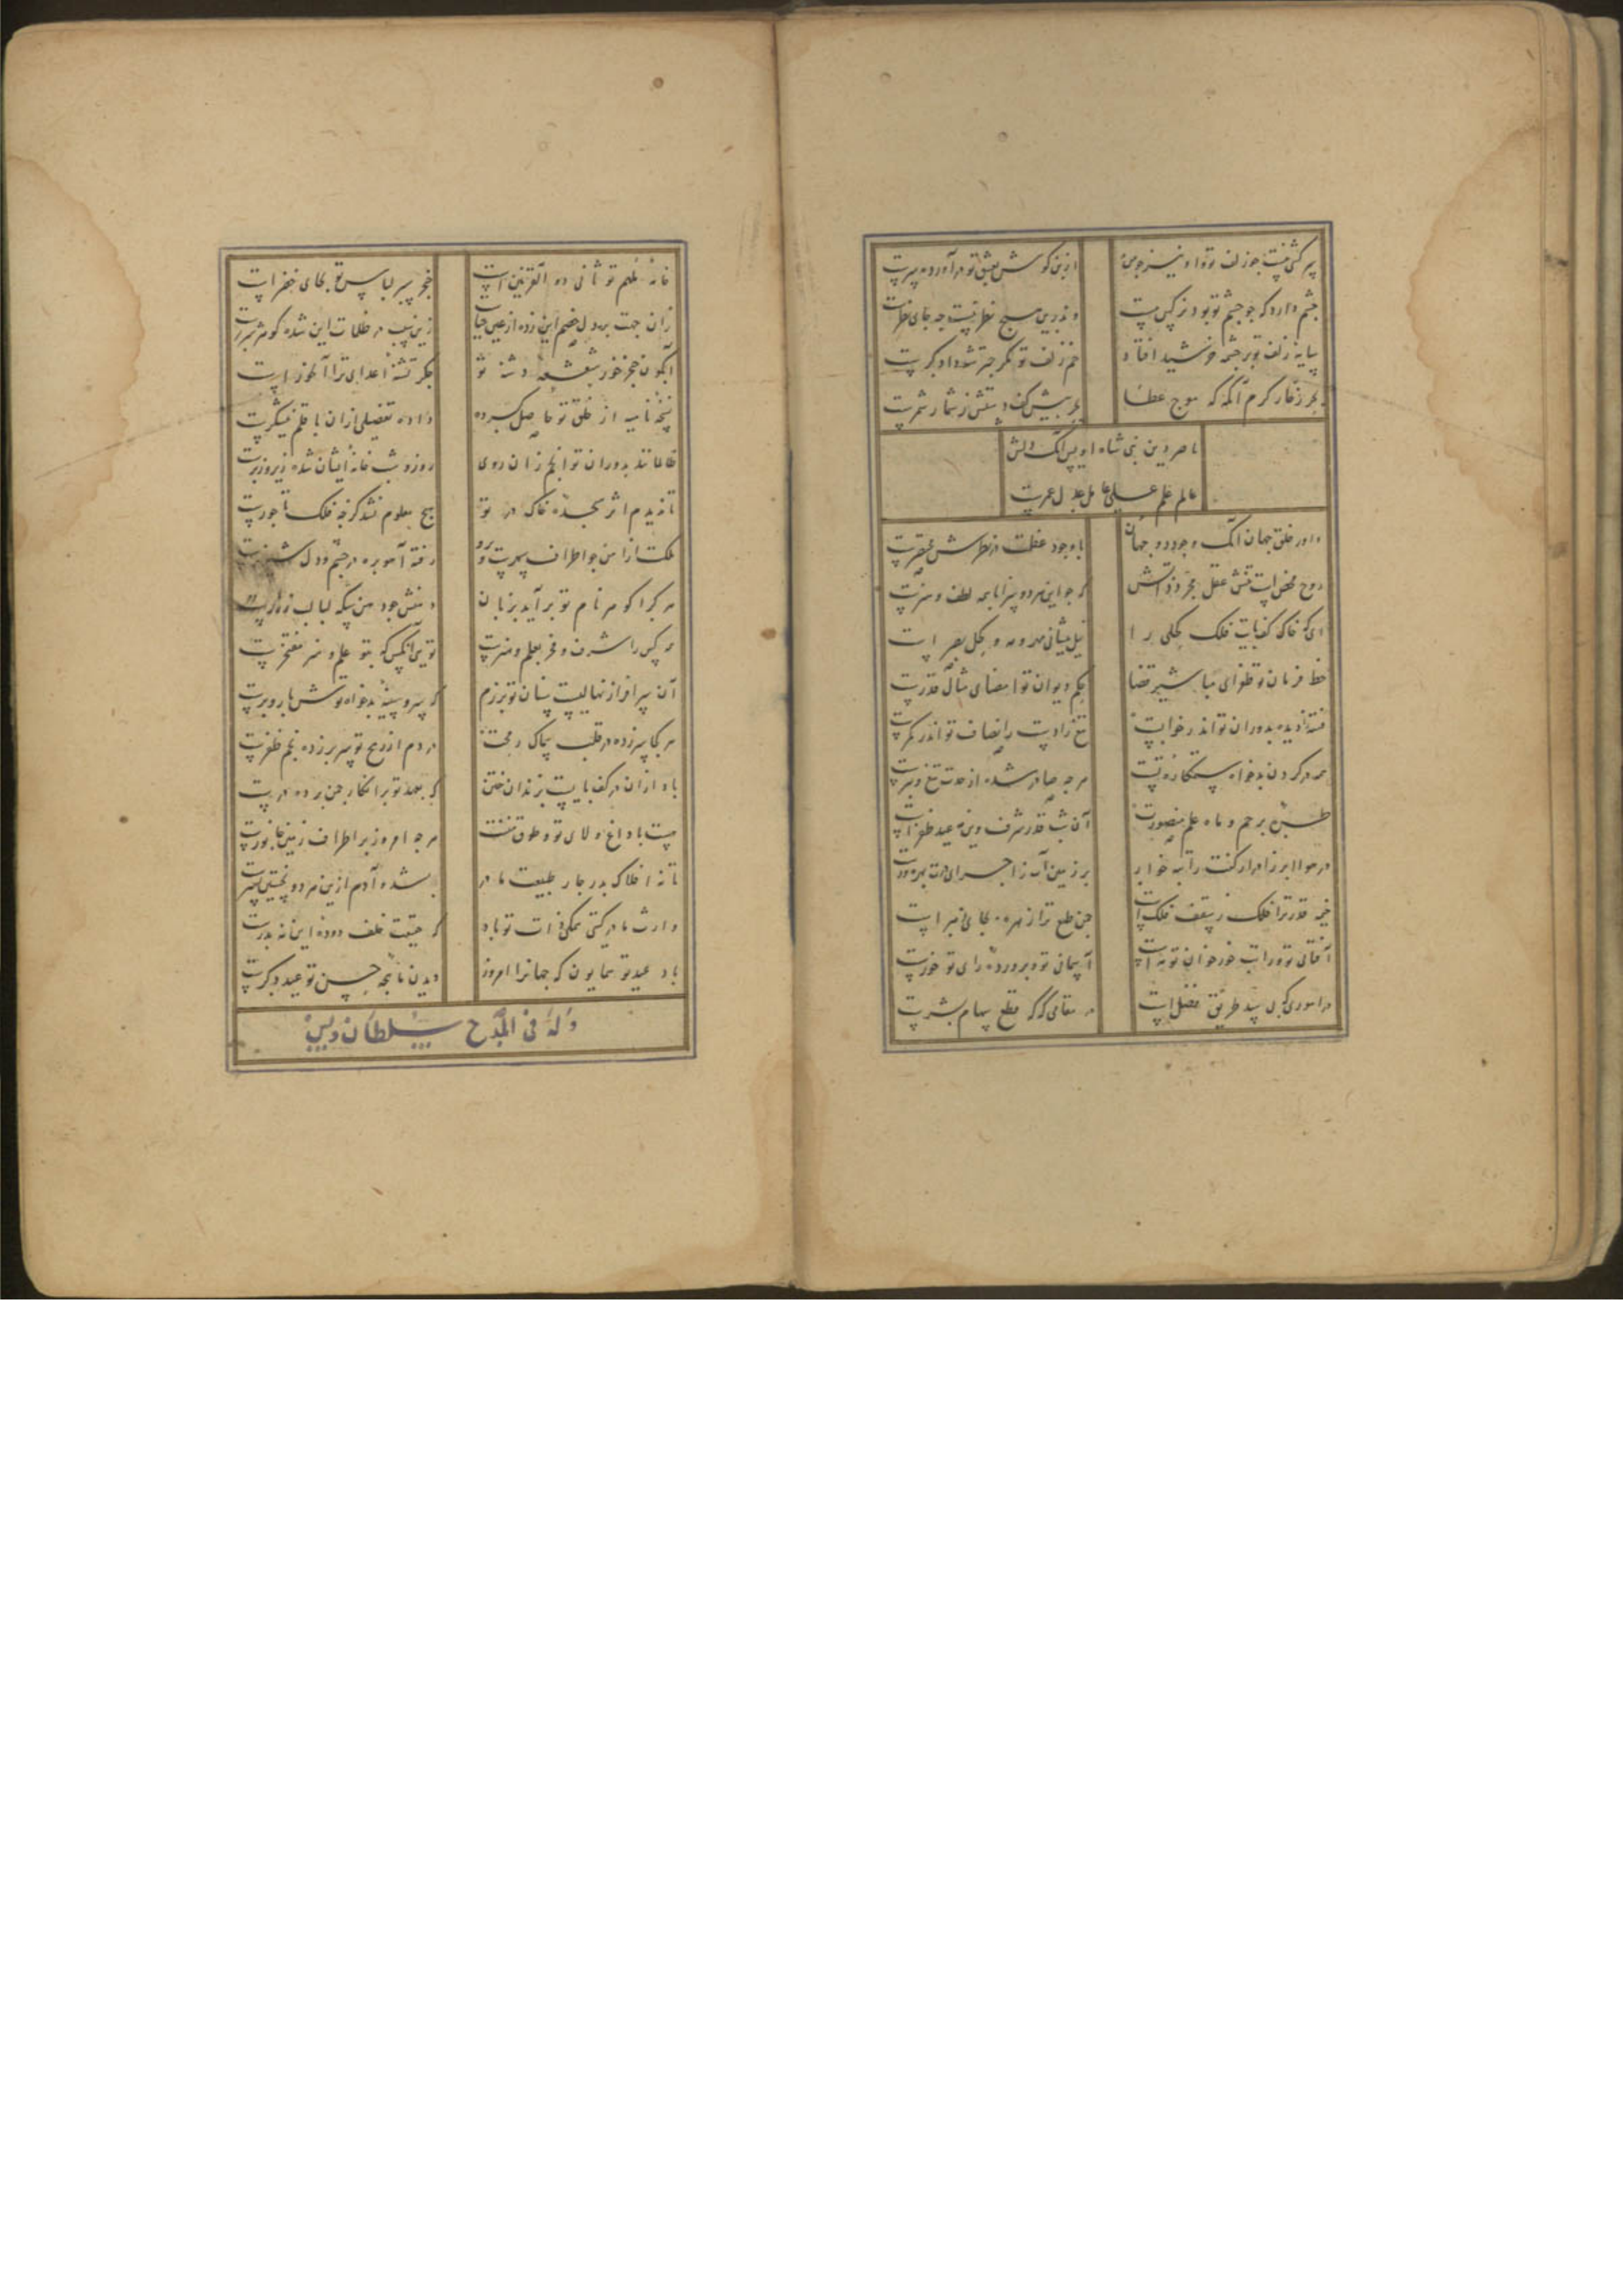 سرکشی نیست چو زلف تو و او نیز چو من
از بن گوش بعشق تو درآورده سرست
چشم دارد که چو چشم تو بود نرگس مست
و ندرین هیچ نظر نیست چه جای نظرست
سایه زلف تو بر چشمه خورشید افتاد
خم زلف تو مکر چتر شه دادگرست
بحر زخار کرم آنکه که موج عطا
بحر پیش کف دستش ز شمار شمرست
ناصر دین نبی شاه اویس آنک دلش
عالم علم علی عامل عدل عمرست
داور خلق جهان آنک وجود دو جهان
با وجود عظمت در نظرش مختصرست
روح محض است تنش عقل مجرد ذاتش
که چو این هر دو سراپا همه لطف و هنرست
ای که خاک کف پایت فلک کحلی را
نیل پیشانی مهر و مه و کحل بصر است
خط فرمان تو طغرای مباشیر قضا
حکم دیوان تو امضای مثال قدرست
فتنه را دیده بدوران تو اندر خوابست
تیغ را دست ز انصاف تو اندر کمرست
همه در گردن بدخواه ستمکاره تست
هر چه صادر شده از حدت تیغ و تبرست
طره پرچم و ماه علم منصورت
آن شب قدر شرف وین مه عید ظفر است
در هوا ابر ز ادرار کفت راتبه خوار
بر زمین آب ز اجرای درت بهره ورست
خیمه قدر ترا فلک ز سقف فلک است
چن طبع ترا زهره بجای زهر است
آفتابی تو وراتب خور خوان تو مه است
آسمانی تو و پرورده رای تو خورست
در اموری که سپید طریق فضل است
در مقامی که که قطع سهام بشرست
خانه ملهم تو ثانی ذو القرنین است
خنجر سبز لباس تو بجای خضر است
زان جهت بر دل خصم این زده از عین حیات
زین سبب در ظلمات این شده کوهر سپرست
آبگون خنجر خور شعشعه دشنه تو
جگر تشنه اعدای ترا آبخور است
نسخه نامیه از خلق تو حاصل کرده
داده تفضیلی از آن با قلم نیشکرست
ظالمانند بدوران تو انجم زان روی
روز و شب خانه ایشان شده زیر و زبرست
تا ندیدم اثر سجده خاک در تو
هیچ معلوم نشد کز چه فلک تاجورست
ملکت از امن چو اطراف سپهرست و درو
رفته آهو بره در چشم و دل شیر نرست
هر کرا گوهر نام تو برآید بزبان
دهنش چون دهن سکه لبالب ز زرست
هر کس را شرف و فخر بعلم و هنرست
تویی آنکس که بتو علم و هنر مفتخرست
آن سرافراز نهالیست سنان تو برزم
که سر و سینه بدخواه تواش بار و برست
هر کجا سر زده در قلب سماک رمحت
در دم از رمح تو سر بر زده نجم ظفرست
باد از آن در کف پایست بزندان ختن
که بعهد تو بر انکار چمن پرده درست
هست با داغ ولای تو و طوق مننت
هر چه امروز بر اطراف زمین جانورست
تا نه افلاک پدر چار طبیعت مادر
شده آدم ازین هر دو نخستین پسرست
وارث مادر گیتی همگی ذات تو باد
که حقیقت خلف دوده این نه پدرست
باد عید تو همایون که جهانرا امروز
دیدن ناصیه حسن تو عید دگرست
وله فی المدح سلطان اویس